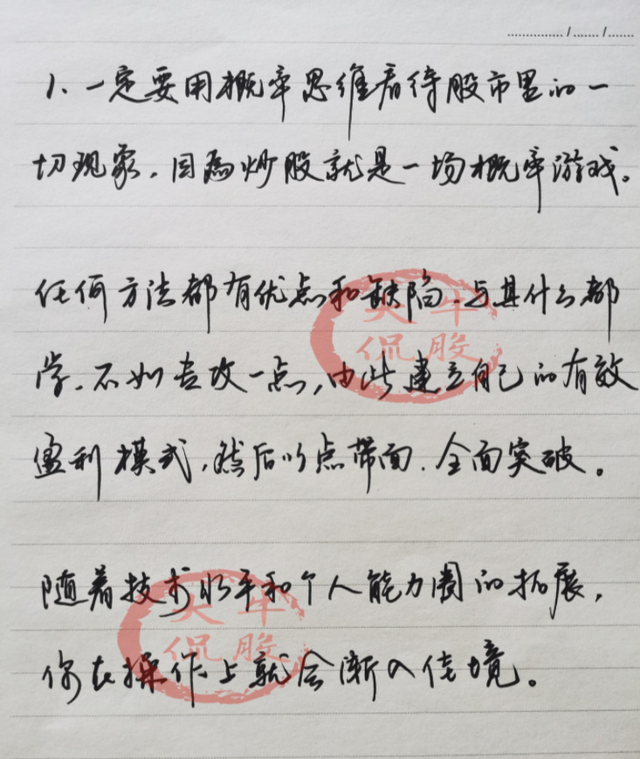 1、一定要用概率思维看待股市里的一
切现象，因为炒股就是一场概率游戏。
任何方法都有优点和缺陷，与其什么都
学，不如专攻一点，由此建立自己的有效
盈利模式，然后以点带面，全面突破。
随着技术水平和个人能力圈的拓展，
你在操作上就会渐入佳境。
牛
侃股
牛
侃股